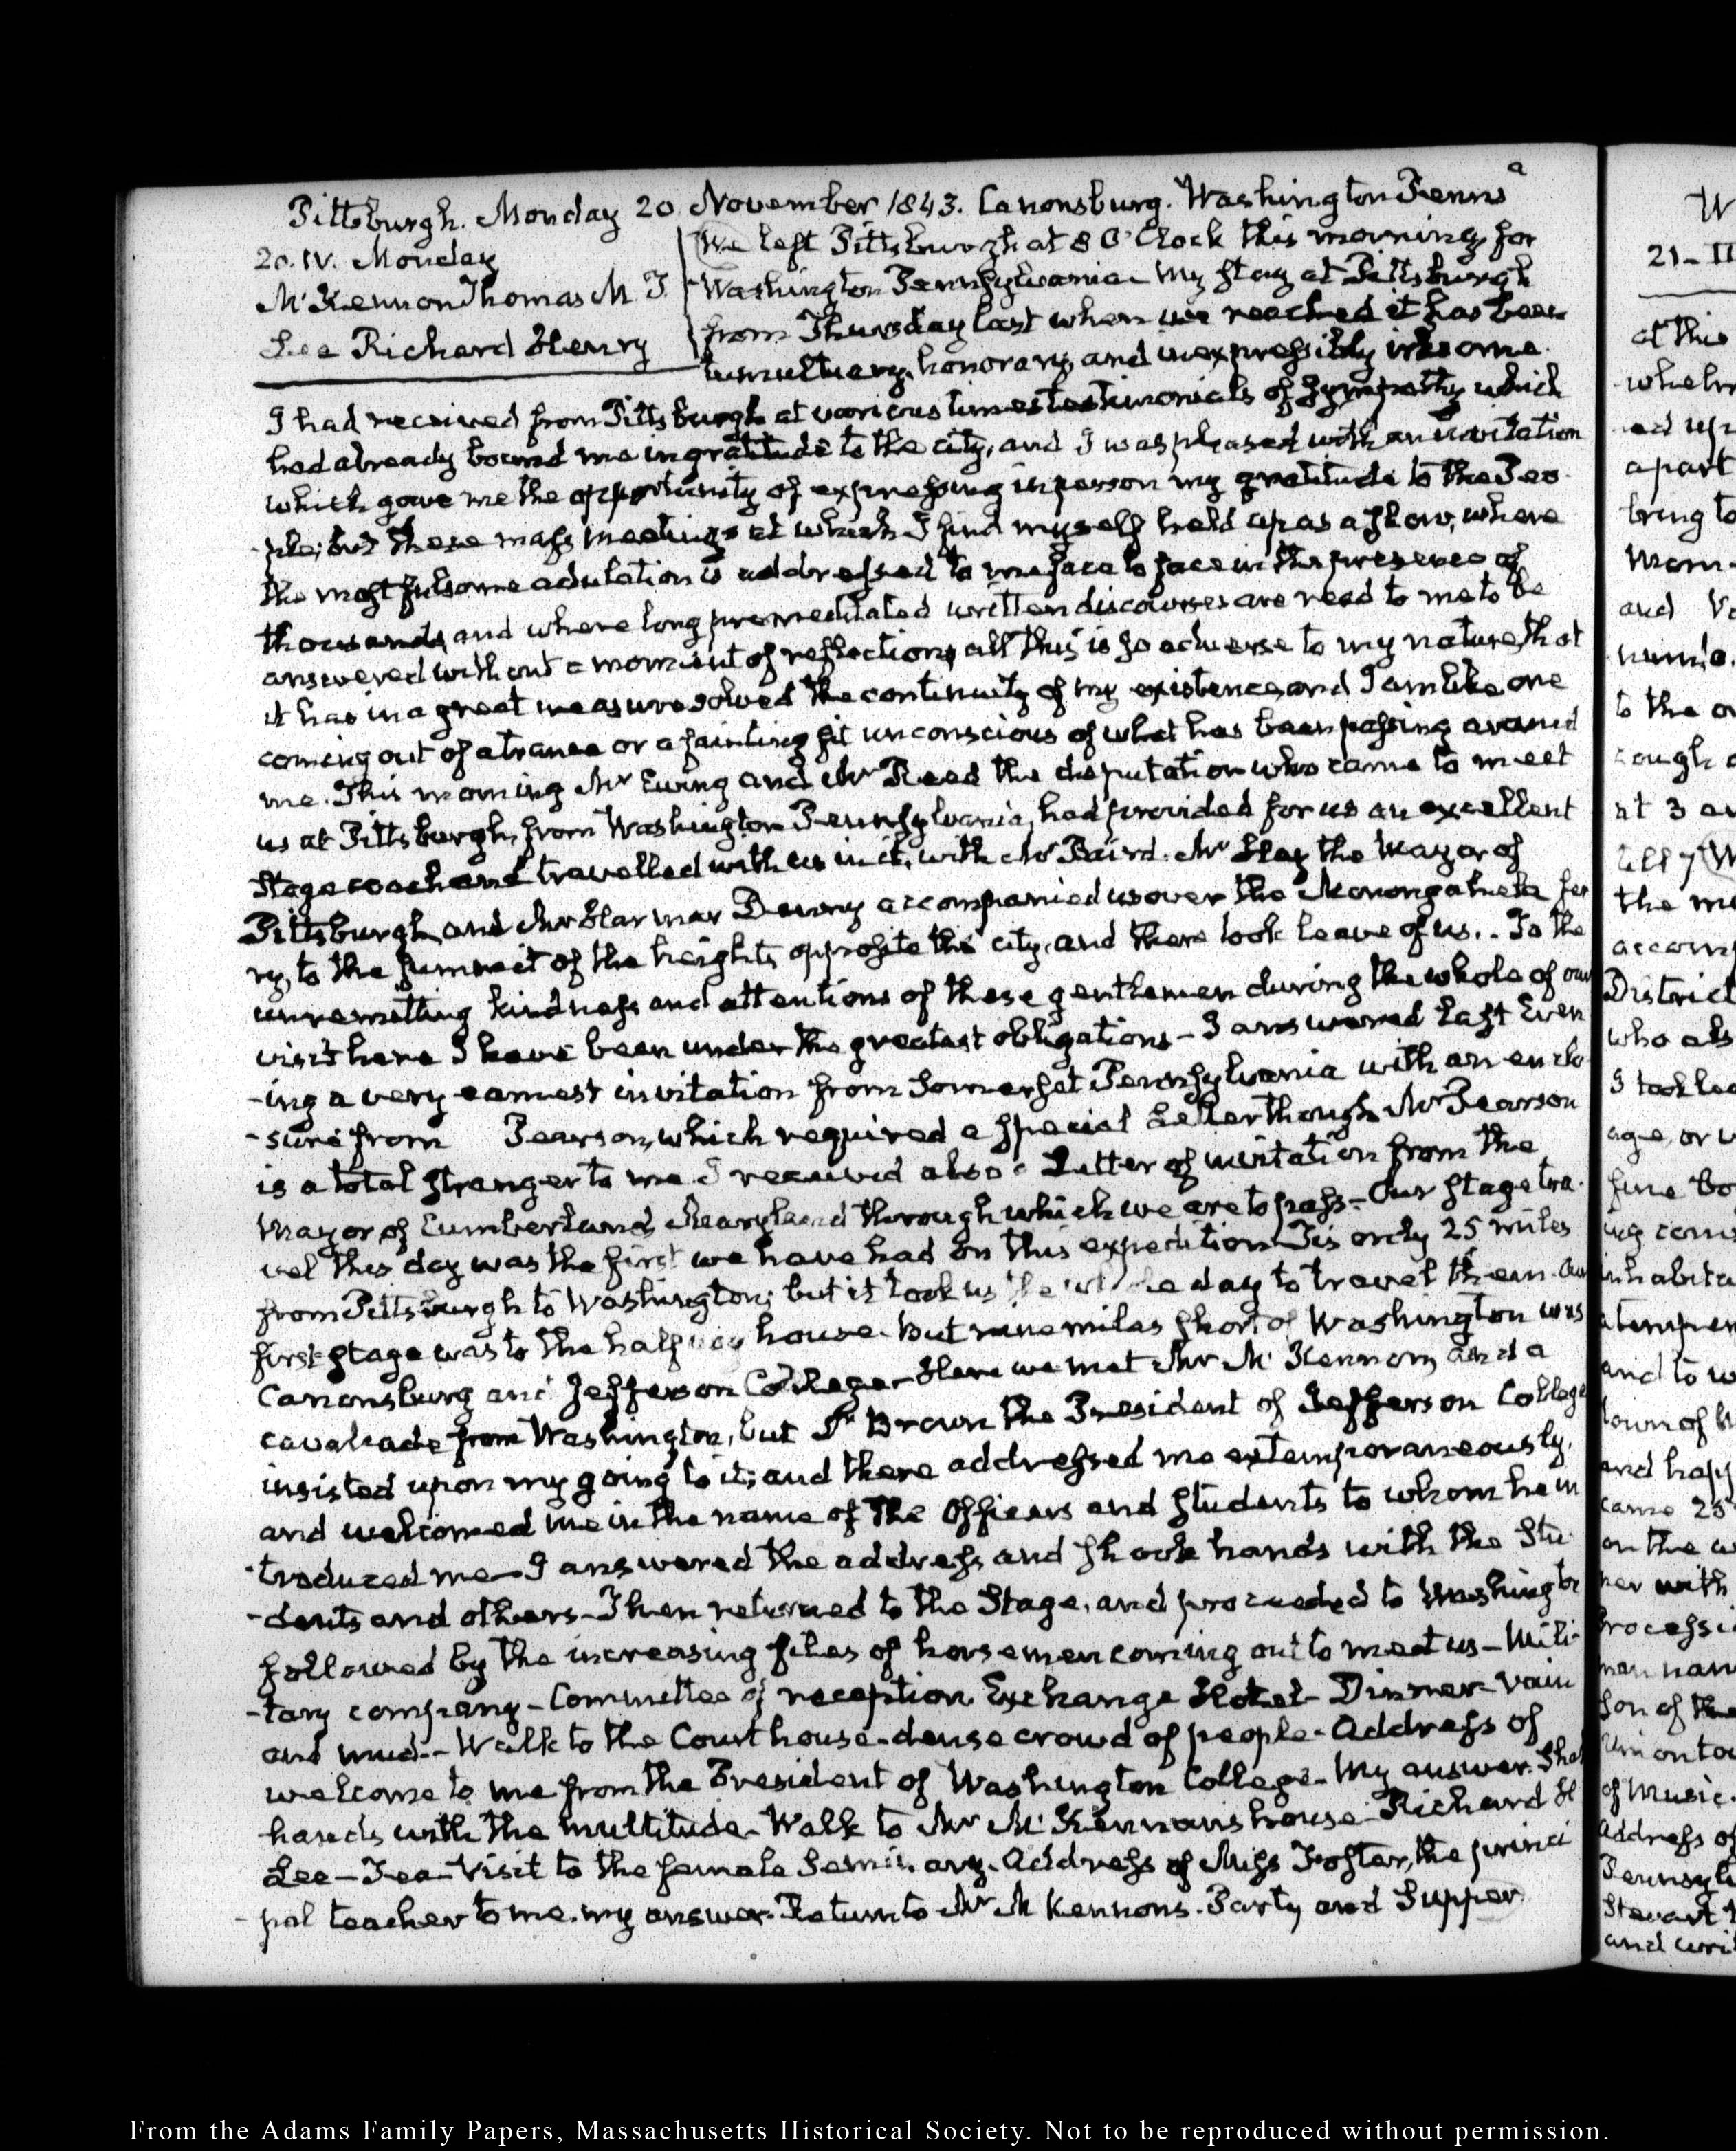 Pittsburgh. Monday 20 November 1843. Canonsburg. Washington Penns^a
20. IV. Monday
McKennon Thomas M. T.
Lee Richard Henry
We left Pittsburgh at 8 O'Clock this morning for
Washington Pennsylvania. My stay at Pittsburgh
from Thursday last when we reached it has been
tumultuary, honorary, and inexpressibly irksome.
I had received from Pittsburgh at various times testimonials of sympathy which
had already bound me in gratitude to the city, and I was pleased with an invitation
which gave me the opportunity of expressing in person my gratitude to the Peo-
-ple; but these mass meetings at which I find myself held up as a show, where
the most fulsome adulation is addressed to me face to face in the presence of
thousands, and where long premeditated written discourses are read to me to be
answered without a moment of reflection, all this is so adverse to my nature, that
it has in a great measure solved the continuity of my existence, and I am like one
coming out of a trance or a fainting fit unconscious of what has been passing around
me. This morning Mr Ewing and Mr Reed the deputation who came to meet
us at Pittsburgh, from Washington Pennsylvania, had provided for us an excellent
Stage coach and travelled with us in it, with Mr Baird. Mr Hay the Mayor of
Pittsburgh and Mr Harmar Denny accompanied us over the Monongahela fer
ry, to the summit of the heights opposite the city, and there took leave of us.. To the
unremitting kindness and attentions of these gentlemen during the whole of our
visit here I have been under the greatest obligations - I answered last Even
-ing a very earnest invitation from Somerset Pennsylvania with an enclo-
-sure from Pearson, which required a special Letter though Mr Pearson
is a total stranger to me. I received also a Letter of invitation from the
Mayor of Cumberland Maryland through which we are to pass - Our stage tra-
vel this day was the first we have had on this expedition. Tis only 25 miles
from Pittsburgh to Washington; but it took us the whole day to travel them. Our
first stage was to the half way house. But nine miles short of Washington was
Canonsburg and Jefferson College - Here we met Mr McKennon, and a
cavalcade from Washington, but Dr Brown the President of Jefferson College
insisted upon my going to it; and there addressed me extemporaneously,
and welcomed me in the name of the Officers and students to whom he in
-troduced me - I answered the address and shook hands with the Stu-
-dents and others - Then returned to the Stage, and proceeded to Washington
followed by the increasing files of horsemen coming out to meet us - Mili-
-tary company - Committee of reception. Exchange Hotel - Dinner - rain
and mud - - Walk to the Court house - dense crowd of people - Address of
welcome to me from the President of Washington College - My answer. Sha
hands with the multitude - Walk to Mr McKennan's house - Richard H
Lee - Tea - Visit to the female Seminary - Address of Miss Foster, the princi
-pal teacher to me. my answer. Return to Mr McKennons. Party and Supper
W
21 - II
at this
apart
bring to
and
to the
at 3
the
District
who als
age, or
and to
town of
and happ
came 25
on the
her with
son of the
Uniontow
of Music.
Address of
Stewart
From the Adams Family Papers, Massachusetts Historical Society. Not to be reproduced without permission.